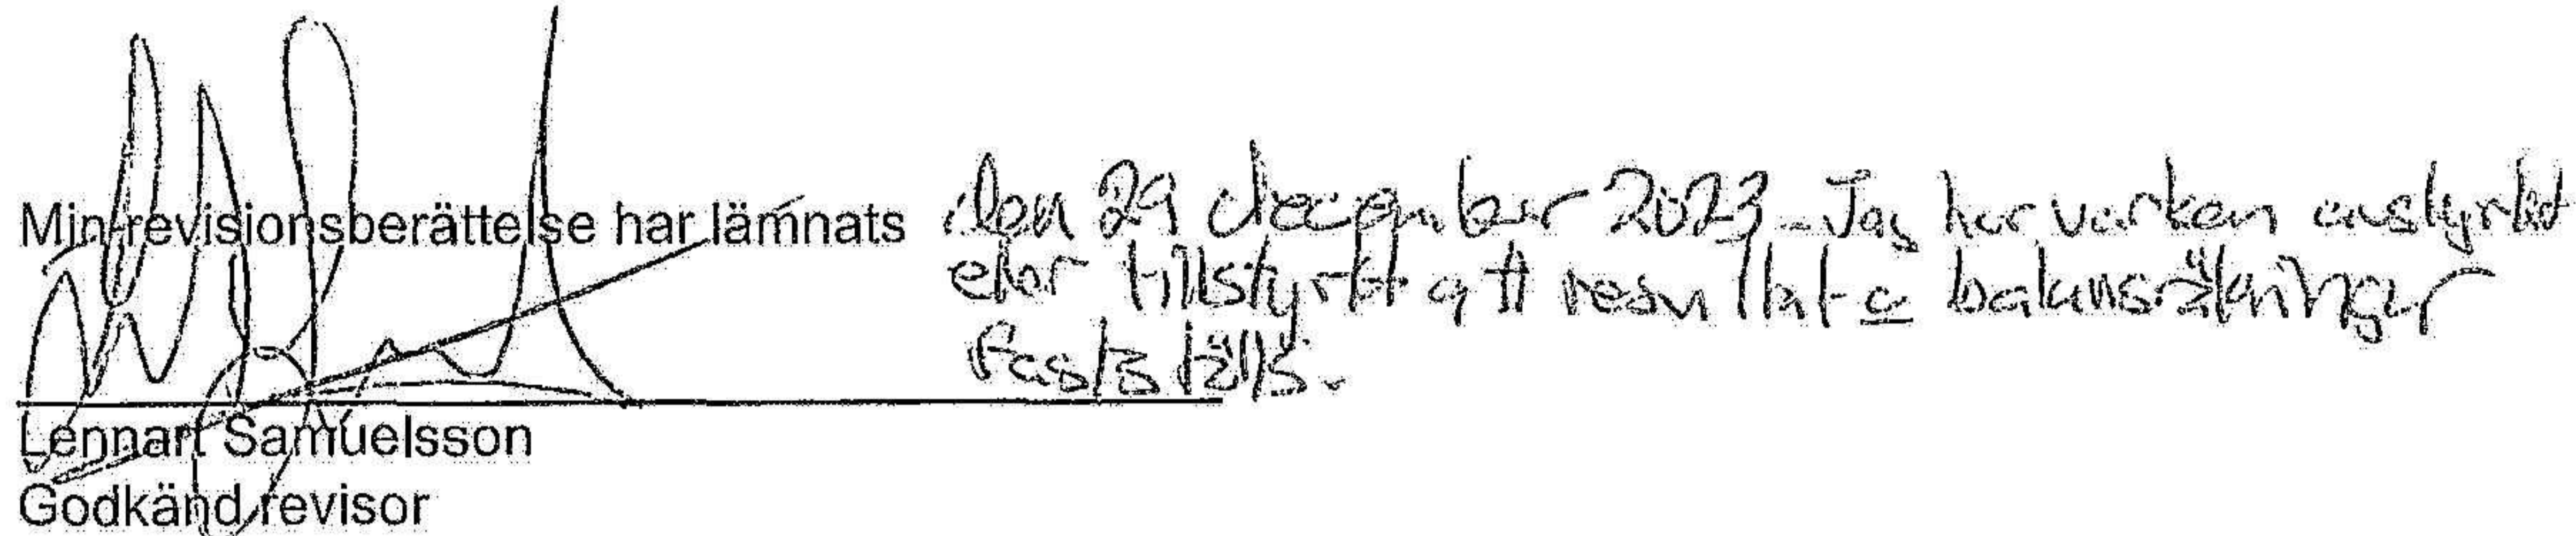 Min revisionsberättelse har lämnats den 29 december 2023 - Jag har varken avstyrkt
eller tillstyrkt att resultat o balansräkningar
fastställs.
Lennart Samuelsson
Godkänd revisor